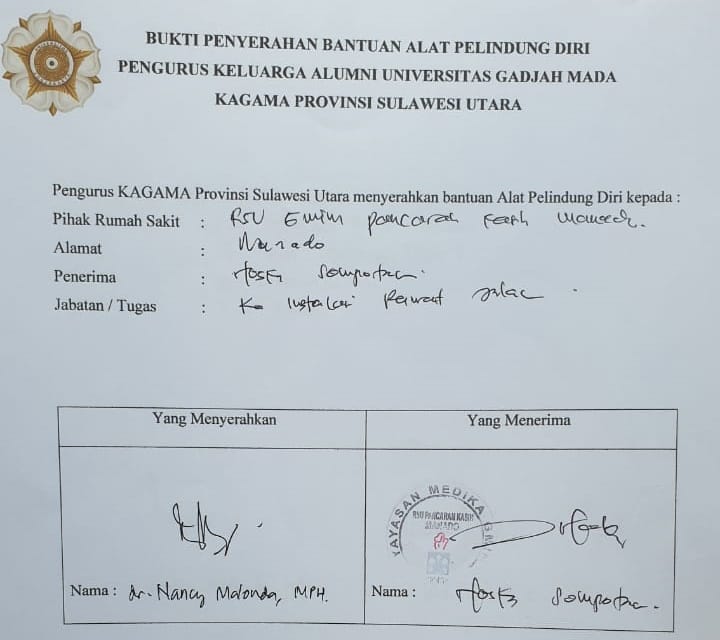 BUKTI PENYERAHAN BANTUAN ALAT PELINDUNG DIRI
PENGURUS KELUARGA ALUMNI UNIVERSITAS GADJAH MADA
KAGAMA PROVINSI SULAWESI UTARA
Pengurus KAGAMA Provinsi Sulawesi Utara menyerahkan bantuan Alat Pelindung Diri kepada :
Pihak Rumah Sakit : RSU GMIM pancaran kasih Manado.
Alamat : Manado
Penerima :
Jabatan / Tugas : Ka Instalasi Rawat jalan
Yang Menyerahkan
Yang Menerima
YAYASAN MEDIKA GMIM
RSU PANCARAN KASIH
MANADO
Nama : dr. Nancy Malonda, MPH.
Nama :